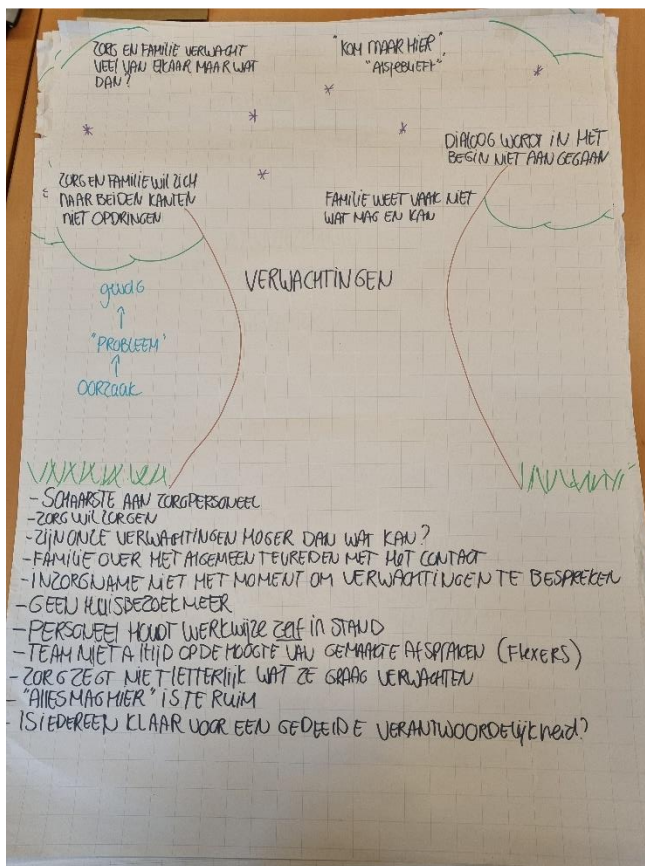 ZORG EN FAMILIE VERWACHT
VEEL VAN ELKAAR MAAR WAT
DAN?
"KOM MAAR HIER",
"ALSTEBLIEFT"
DIALOOG WORDT IN HET
BEGIN NIET AAN GEGAAN
ZORG EN FAMILIE WIL ZICH
NAAR BEIDEN KANTEN
NIET OPDRINGEN
FAMILIE WEET VAAK NIET
WAT MAG EN KAN
VERWACHTINGEN
gevolg
↑
"PROBLEEM"
↑
OORZAAK
- SCHAARSTE AAN ZORGPERSONEEL
- ZORG WIL ZORGEN
- ZIJN ONZE VERWACHTINGEN HOGER DAN WAT KAN?
- FAMILIE OVER HET ALGEMEEN TEVREDEN MET HET CONTACT
- INZORGNAME NIET HET MOMENT OM VERWACHTINGEN TE BESPREKEN
- GEEN HUISBEZOEK MEER
- PERSONEEL HOUDT WERKWIJZE zelf IN STAND
- TEAM NIET ALTIJD OP DE HOOGTE VAN GEMAAKTE AFSPRAKEN (FLEXERS)
- ZORG ZEGT NIET LETTERLIJK WAT ZE GRAAG VERWACHTEN
- "ALLES MAG HIER" IS TE RUIM
- IS IEDEREEN KLAAR VOOR EEN GEDEELDE VERANTWOORDELIJKHEID?